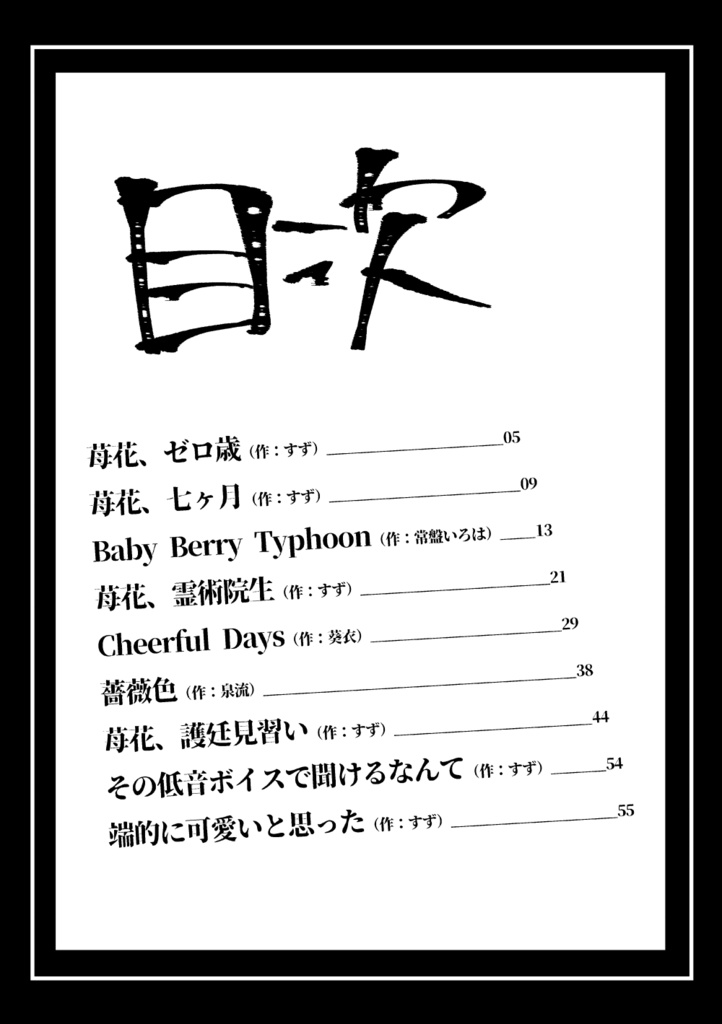 目次
苺花、ゼロ歳（作：すず）05
苺花、七ヶ月（作：すず）09
Baby Berry Typhoon（作：常盤いろは）13
苺花、霊術院生（作：すず）21
Cheerful Days（作：葵衣）29
薔薇色（作：泉流）38
苺花、護廷見習い（作：すず）44
その低音ボイスで聞けるなんて（作：すず）54
端的に可愛いと思った（作：すず）55